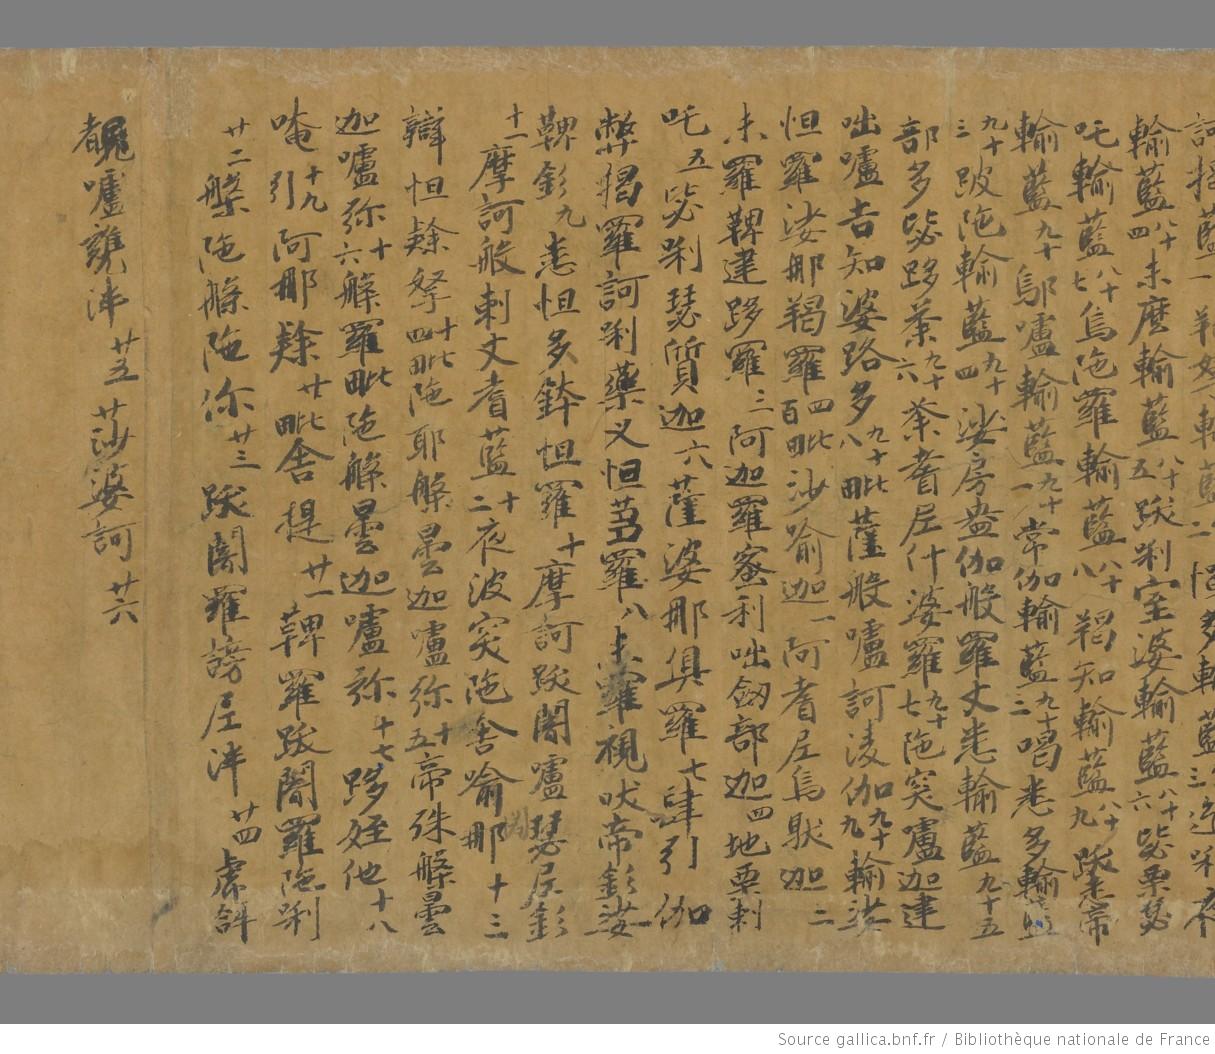 訶揭藍一
輸藍八十四未麼輸藍八十五跋唎室婆輸藍八十六毖栗瑟
吒輸藍八十七烏陁羅輸藍八十八羯知輸藍八十九跋悉帝
輸藍九十鄔嚧輸藍九十一常伽輸藍九十二喝悉多輸藍
九十三跛陁輸藍九十四娑房盎伽般羅丈悉輸藍九十五
部多毖跢荼九十六荼耆尼什婆羅九十七陁突嚧迦建
咄嚧吉知婆路多九十八毗薩般嚧訶淩伽九十九輸沙
怛羅娑那羯羅百四毗沙喻迦一阿耆尼烏馱迦二
末羅鞞建跢羅三阿迦羅蜜利咄劒部迦四地栗剌
吒五毖唎瑟質迦六薩婆那俱羅七肆引伽
弊揭羅訶唎藥义怛芻羅八末羅視吠帝釤娑
鞞釤九悉怛多鉢怛羅十摩訶跋闍嚧瑟尼釤
十一摩訶般剌丈耆藍十二夜波突陁舍喻那十三
辯怛𨅖拏十四毗陁耶槃曇迦嚧弥十五帝殊槃曇
迦嚧弥十六槃羅毗陁槃曇迦嚧弥十七跢姪他十八
唵引十九阿那𨅖廿毗舍提廿一鞞羅跋闍羅陁唎
廿二槃陁槃陁你廿三跋闍羅謗尼泮廿四虎𤙖
都嚧甕泮廿五莎婆訶廿六
Source gallica.bnf.fr / Bibliothèque nationale de France